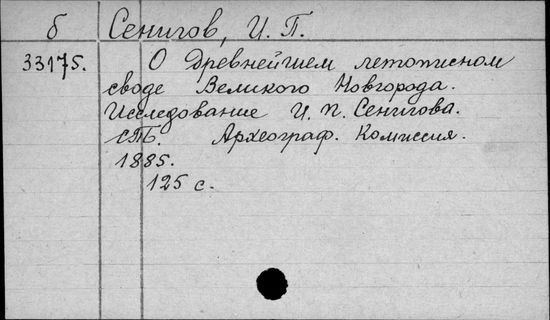 б Сенигов, И. П.
33175. О древнейшем летописном
своде Великого Новгорода.
Исследование И. П. Сенигова.
СПБ. Археограф. Комиссия.
1885.
125 с.